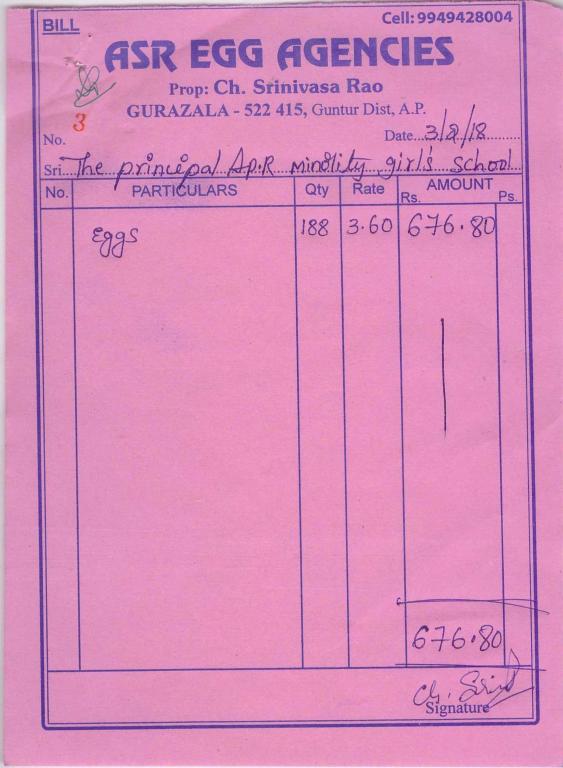 BILL
Cell: 9949428004
ASR EGG AGENCIES
Prop: Ch. Srinivasa Rao
GURAZALA - 522 415, Guntur Dist, A.P.
3
No.
Date 3/2/18
Sri The principal A.P.R minolity girl's school
No. PARTICULARS Qty Rate AMOUNT
Rs. Ps.
Eggs 188 3.60 676.80
676.80
Signature